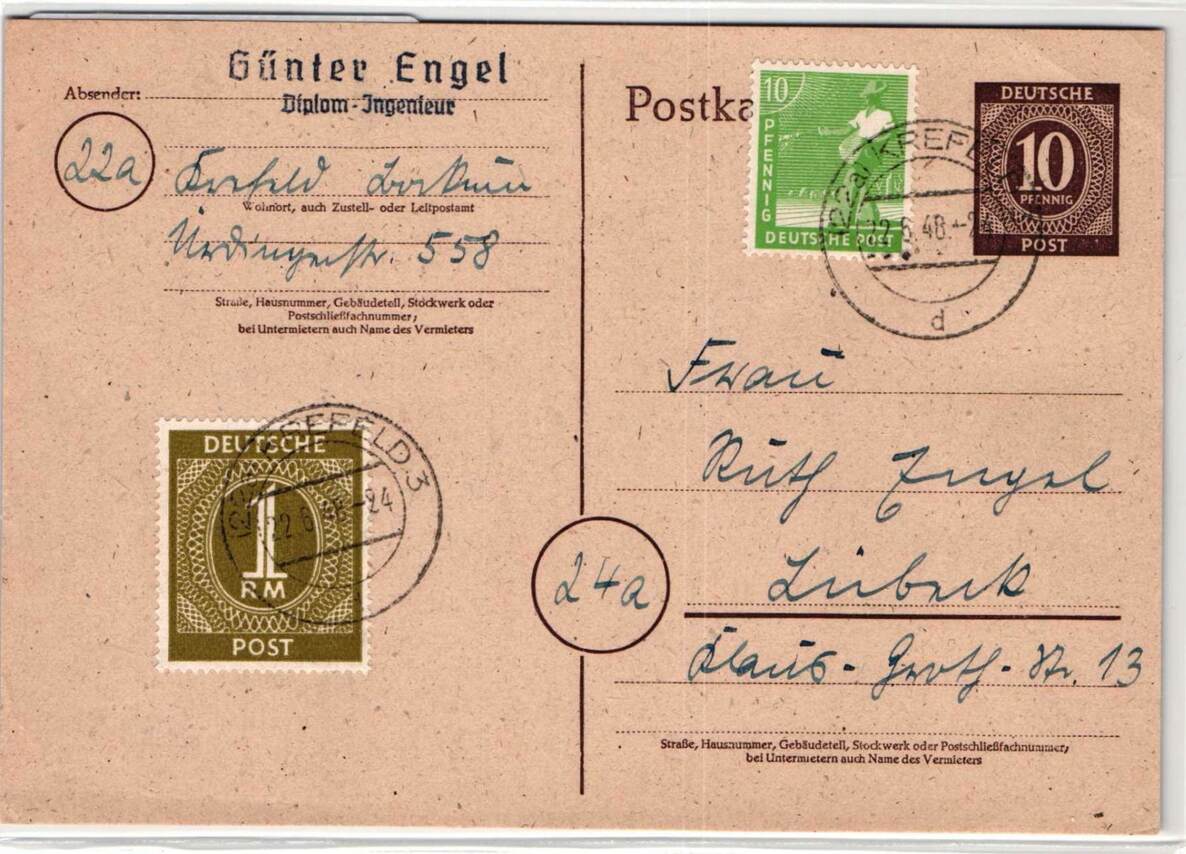 Günter Engel
Diplom-Ingenieur
Absender:
22a
Krefeld Bockum
Wohnort, auch Zustell- oder Leitpostamt
Ürdingerstr. 558
Straße, Hausnummer, Gebäudeteil, Stockwerk oder
Postschließfachnummer;
bei Untermietern auch Name des Vermieters
Postka
10
PFENNIG
DEUTSCHE POST
DEUTSCHE
10
PFENNIG
POST
(22a) KREFELD
22.6.48.-24
d
Frau
Ruth Engel
24a
Lübeck
Klaus-Groth-Str. 13
Straße, Hausnummer, Gebäudeteil, Stockwerk oder Postschließfachnummer;
bei Untermietern auch Name des Vermieters
DEUTSCHE
1
RM
POST
KREFELD 3
22.6.48-24